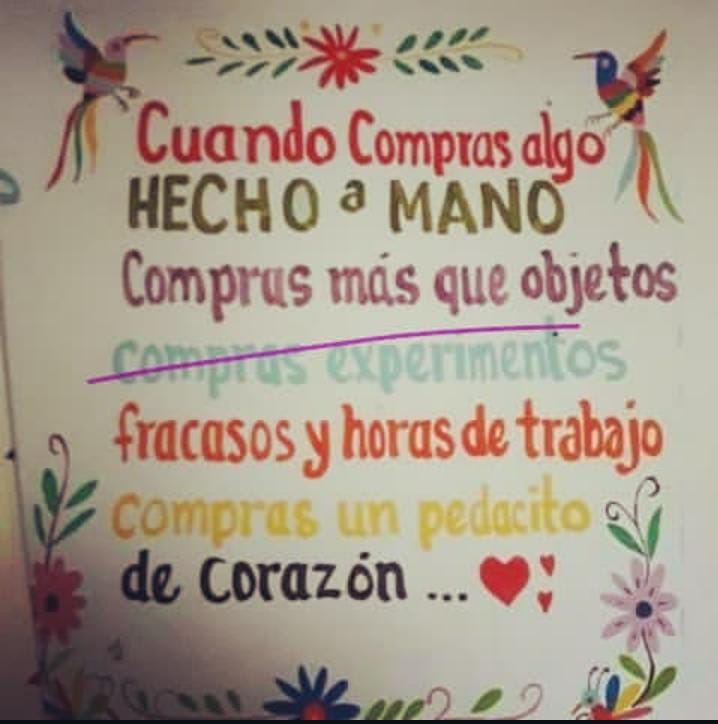 Cuando Compras algo
HECHO a MANO
Compras más que objetos
compras experimentos
fracasos y horas de trabajo
compras un pedacito
de corazón ...